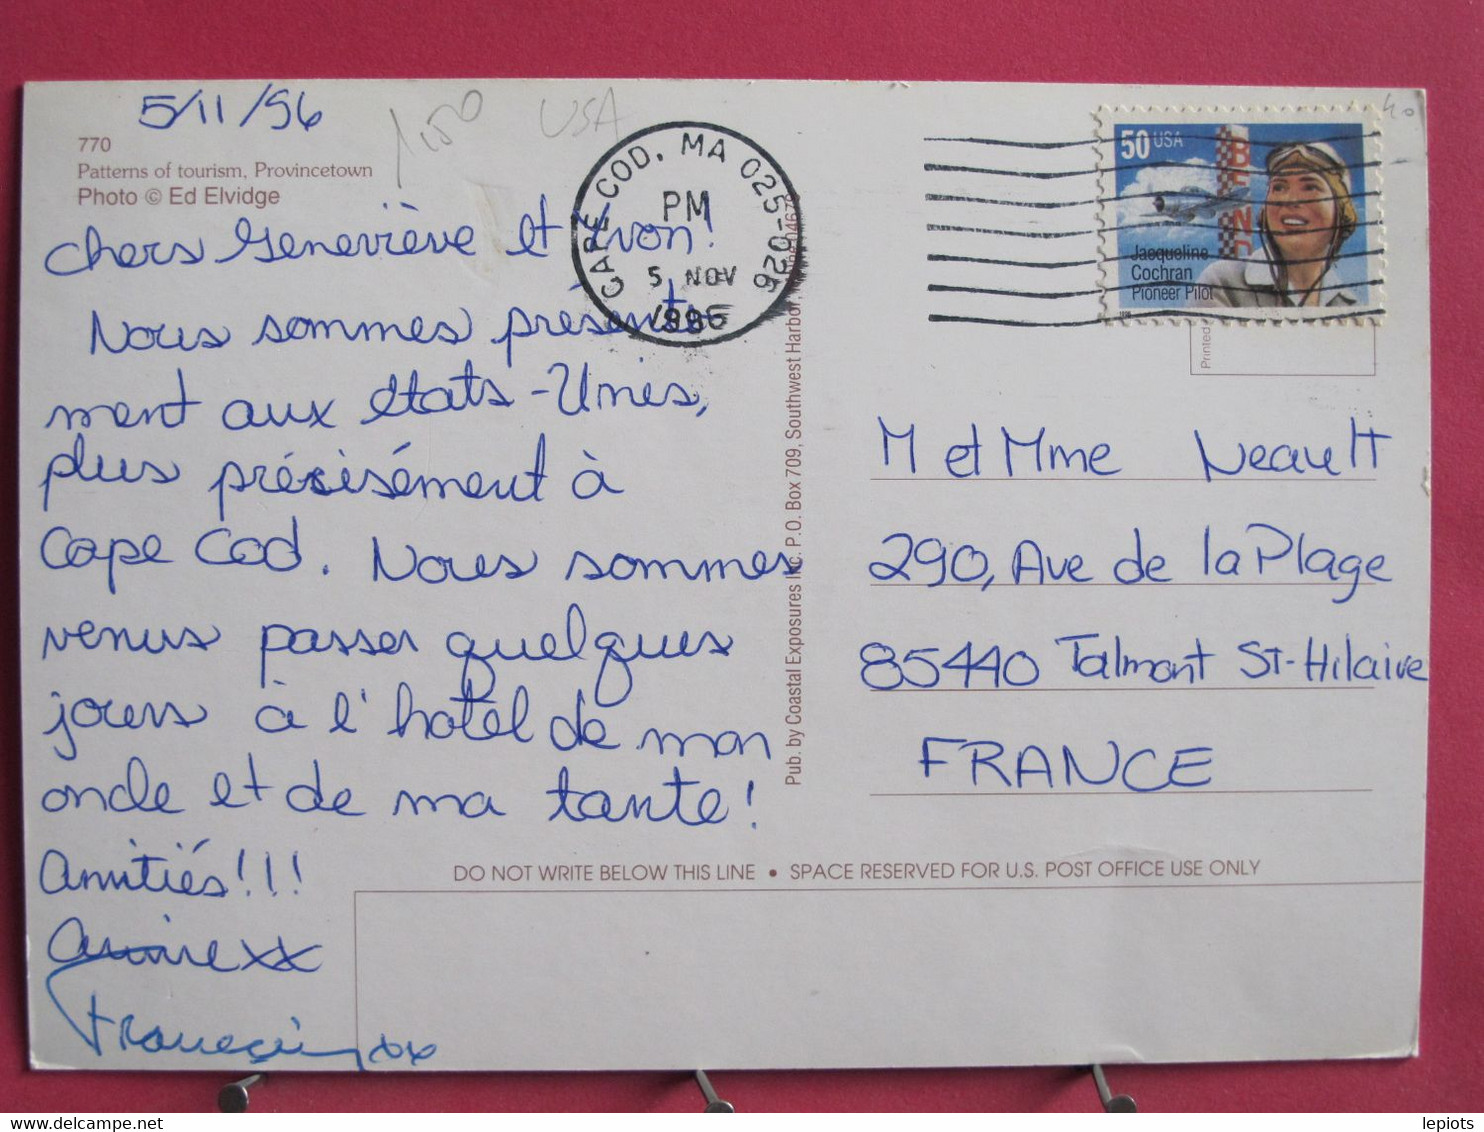 5/11/96
1€50
USA
40
770
Patterns of tourism, Provincetown
Photo © Ed Elvidge
CAPE COD, MA 025-026
PM
5 NOV
1996
50 USA
Jacqueline
Cochran
Pioneer Pilot
Printed
chers Geneviève et Yvon!
Nous sommes présente-
ment aux états-Unis,
plus précisément à
Cape Cod. Nous sommes
venus passer quelques
jours à l'hotel de mon
oncle et de ma tante!
Amitiés!!!
Annie xx
xx
Pub. by Coastal Exposures Inc. P.O. Box 709, Southwest Harbor,
M et Mme Neault
290, Ave de la Plage
85440 Talmont St-Hilaire
FRANCE
DO NOT WRITE BELOW THIS LINE • SPACE RESERVED FOR U.S. POST OFFICE USE ONLY
lepiots
delcampe.net